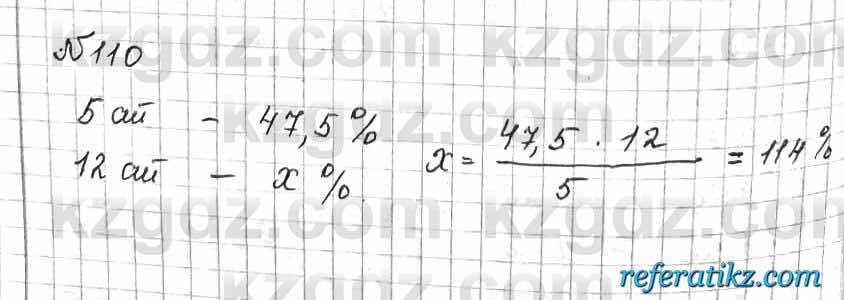 №110
5 ай - 47,5%
12 ай - x %.
x = \frac{47,5 \cdot 12}{5} = 114%
kzgdz.com kzgdz.com
kzgdz.com
kzgdz.com kzgdz.com
referatikz.com